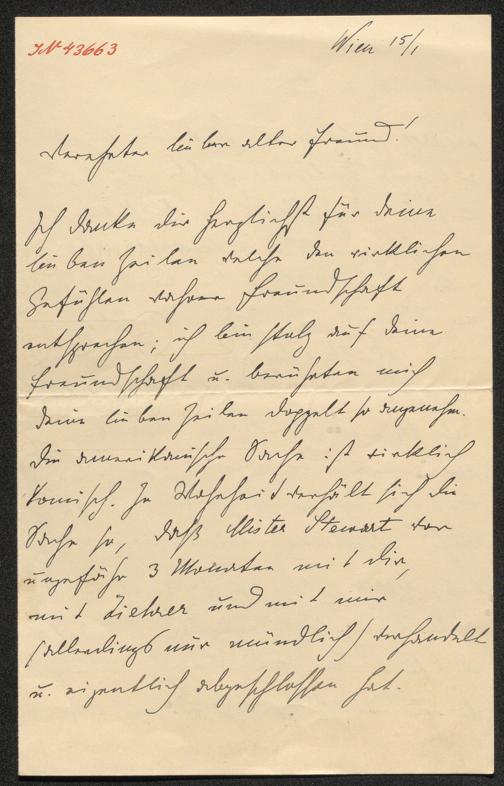 IN 43663
Wien 15/1
Verehrter lieber alter Freund!
Ich danke dir herzlichst für deine
lieben Zeilen welche den wirklichen
Gefühlen wahrer Freundschaft
entsprechen; ich bin stolz auf deine
Freundschaft u. berührten mich
deine lieben Zeilen doppelt so angenehm.
Die amerikanische Sache ist wirklich
komisch. In Wahrheit verhält sich die
Sache so, daß Mister Stewart vor
ungefähr 3 Monaten mit dir,
mit Ziehrer und mit mir
(allerdings nur mündlich) verhandelt
u. eigentlich abgeschlossen hat.